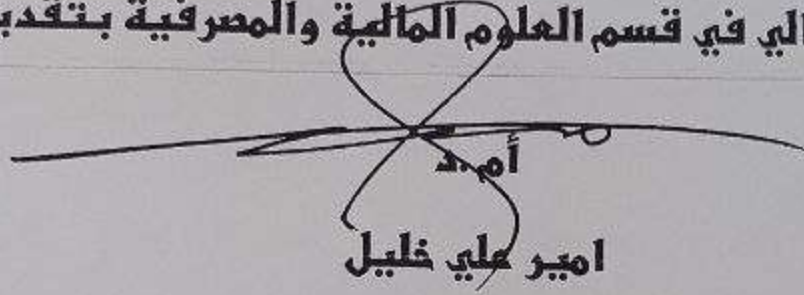 الي في قسم العلوم المالية والمصرفية بتقدي
أ.م.د
امير علي خليل